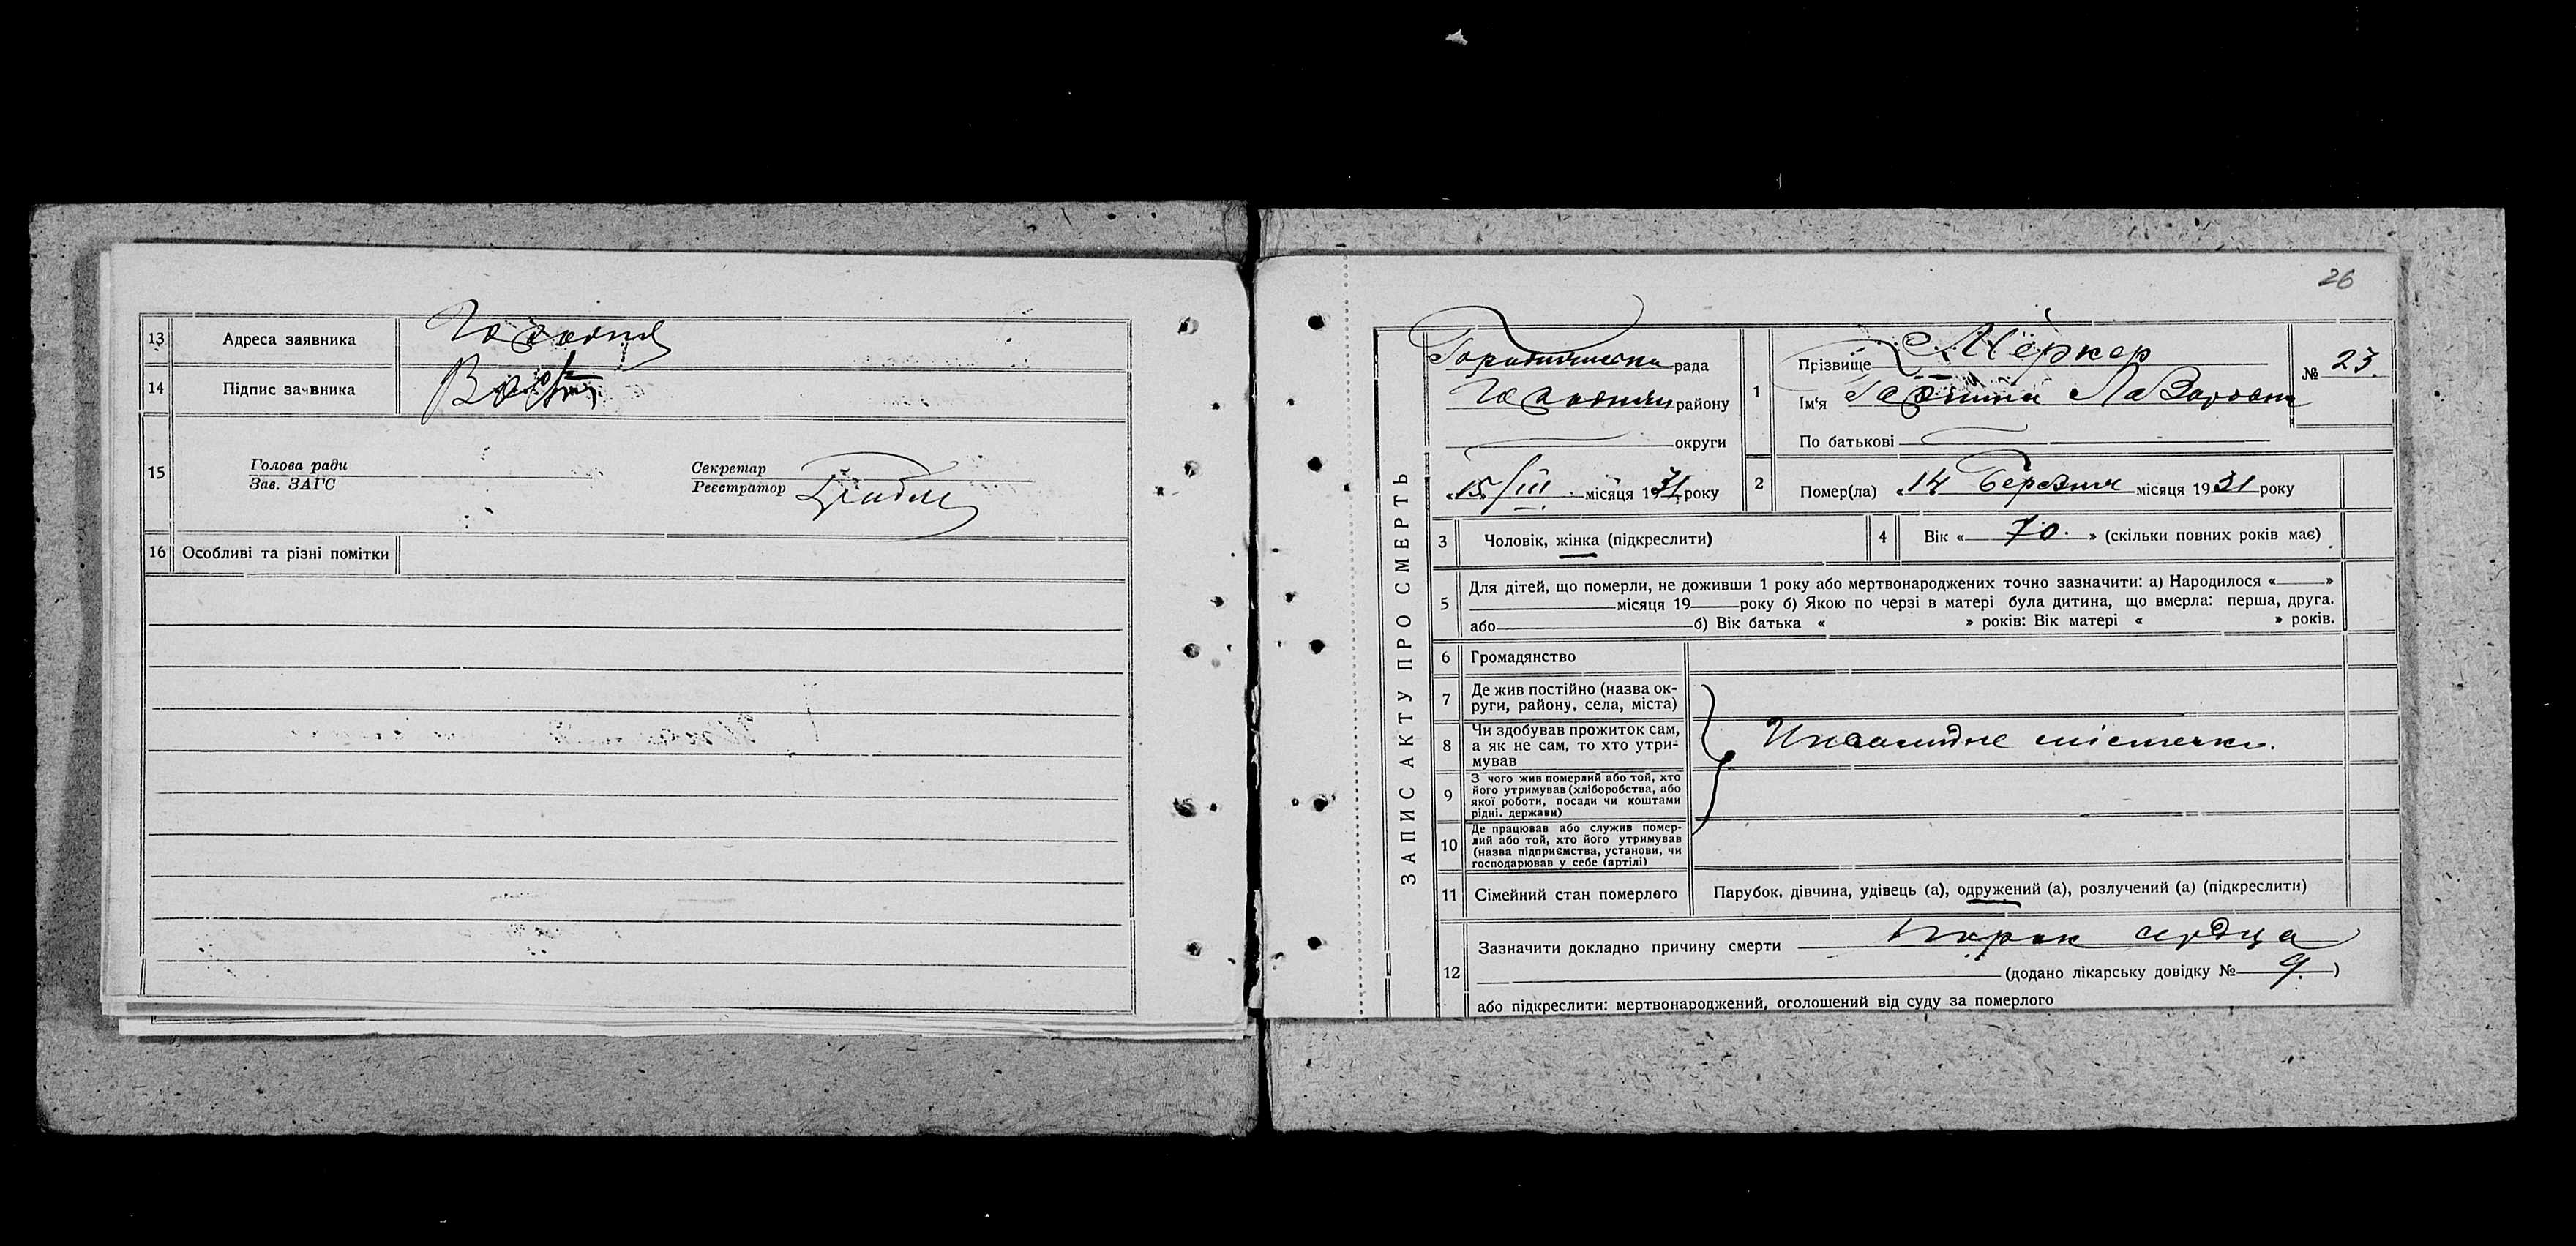 13 Адреса заявника
14 Підпис заявника
15 Голова ради
Зав. ЗАГС
Секретар
Реєстратор
16 Особливі та різні помітки
26
ЗАПИС АКТУ ПРО СМЕРТЬ
рада
району
округи
„15/III місяця 1931 року
1 Прізвище Мёркер
Ім'я Лазаровна
По батькові
№ 23.
2 Помер(ла) «14 Березня місяця 1931 року
3 Чоловік, жінка (підкреслити)
4 Вік « 70. » (скільки повних років має)
5 Для дітей, що померли, не доживши 1 року або мертвонароджених точно зазначити: а) Народилося « »
місяця 19 року б) Якою по черзі в матері була дитина, що вмерла: перша, друга.
або б) Вік батька « » років: Вік матері « » років.
6 Громадянство
7 Де жив постійно (назва ок-
руги, району, села, міста)
8 Чи здобував прожиток сам,
а як не сам, то хто утри-
мував
9 З чого жив померлий або той, хто
його утримував (хліборобства, або
якої роботи, посади чи коштами
рідні, держави)
10 Де працював або служив помер-
лий або той, хто його утримував
(назва підприємства, установи, чи
господарював у себе (артілі)
11 Сімейний стан померлого Парубок, дівчина, удівець (а), одружений (а), розлучений (а) (підкреслити)
12 Зазначити докладно причину смерти порок сердца
(додано лікарську довідку № 9. )
або підкреслити: мертвонароджений, оголошений від суду за померлого